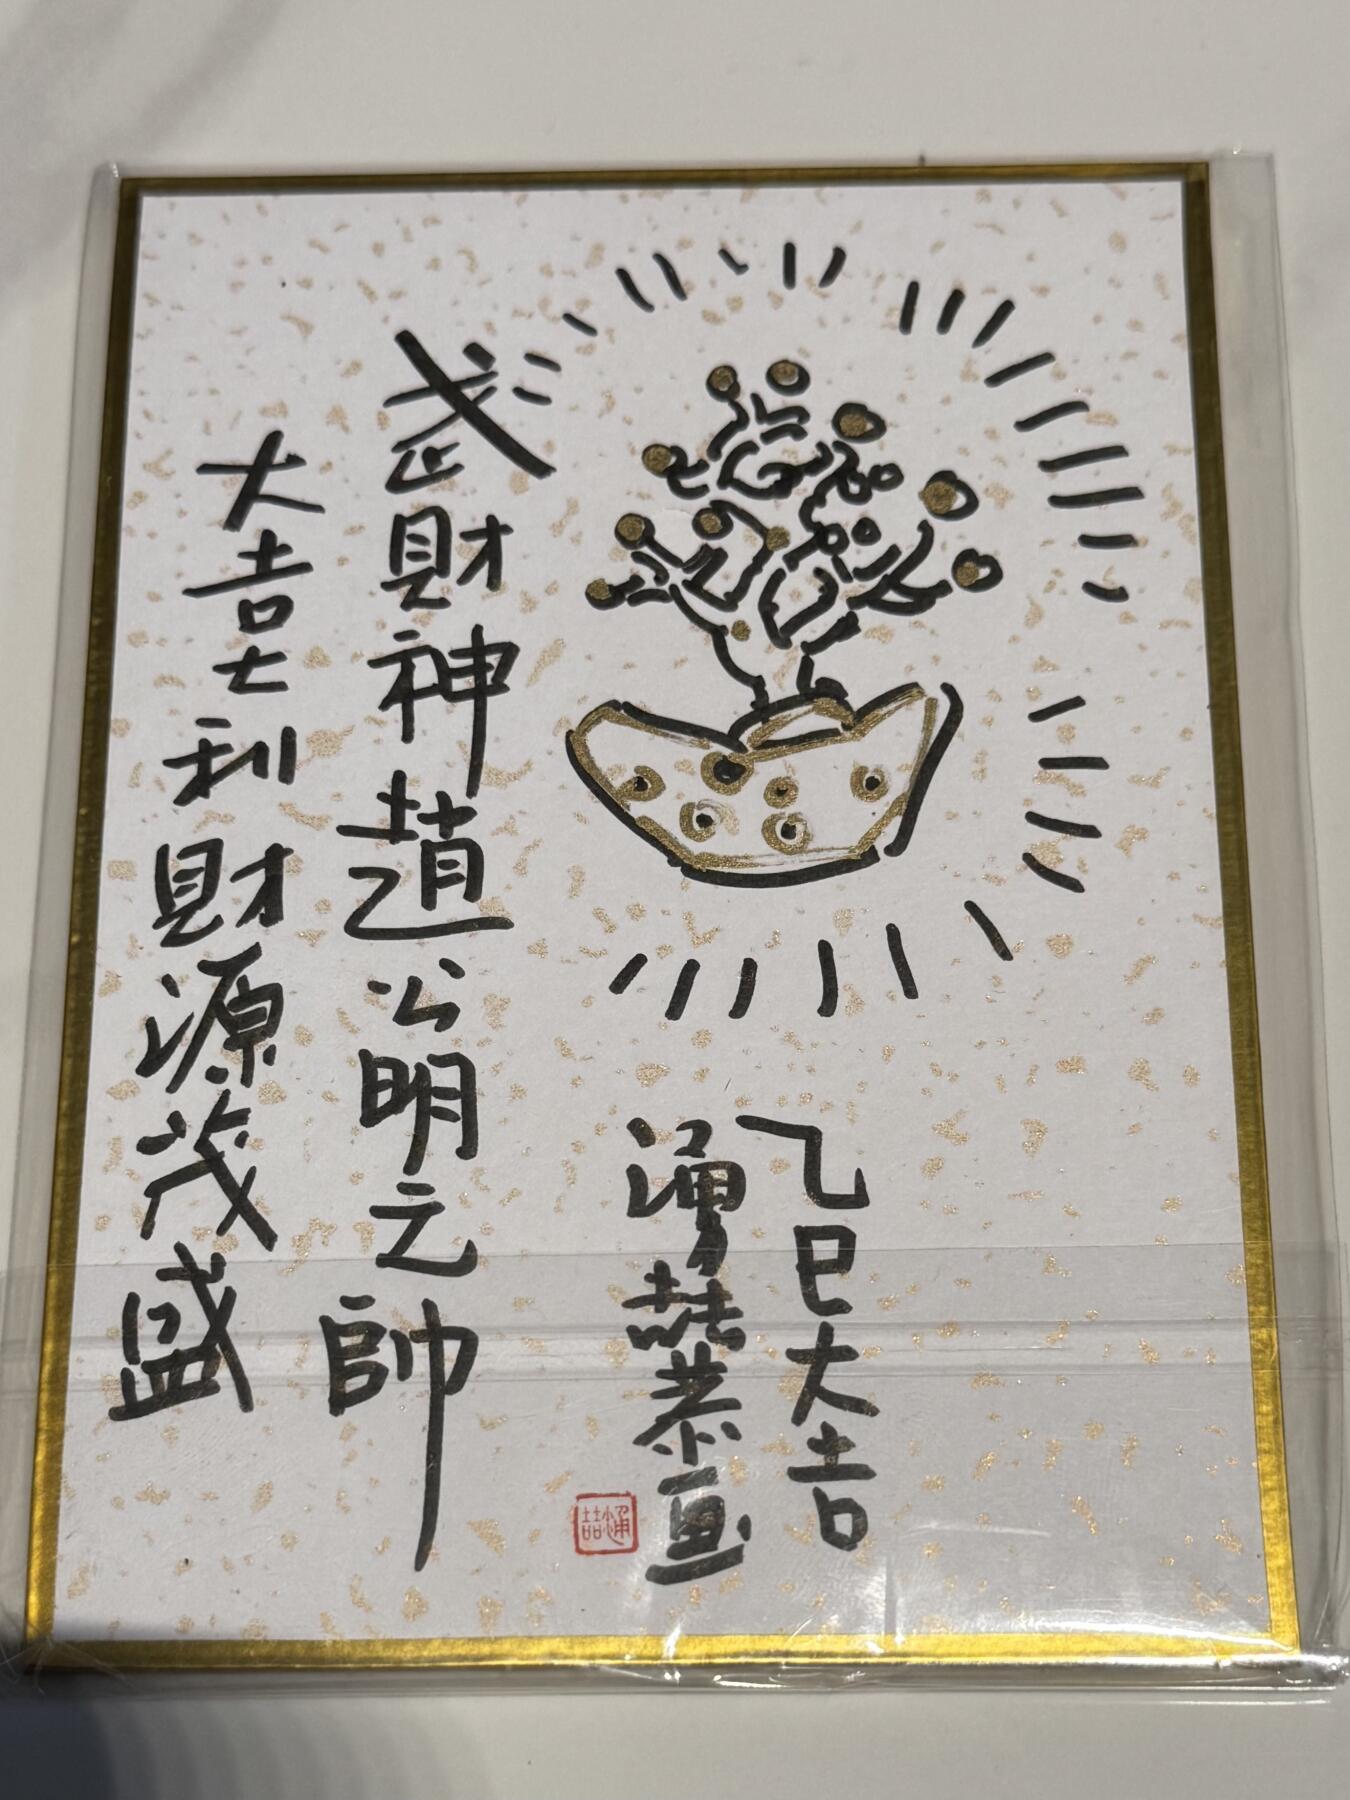 乙巳大吉
湧喆恭画
武財神趙公明元帥
大吉大利財源茂盛